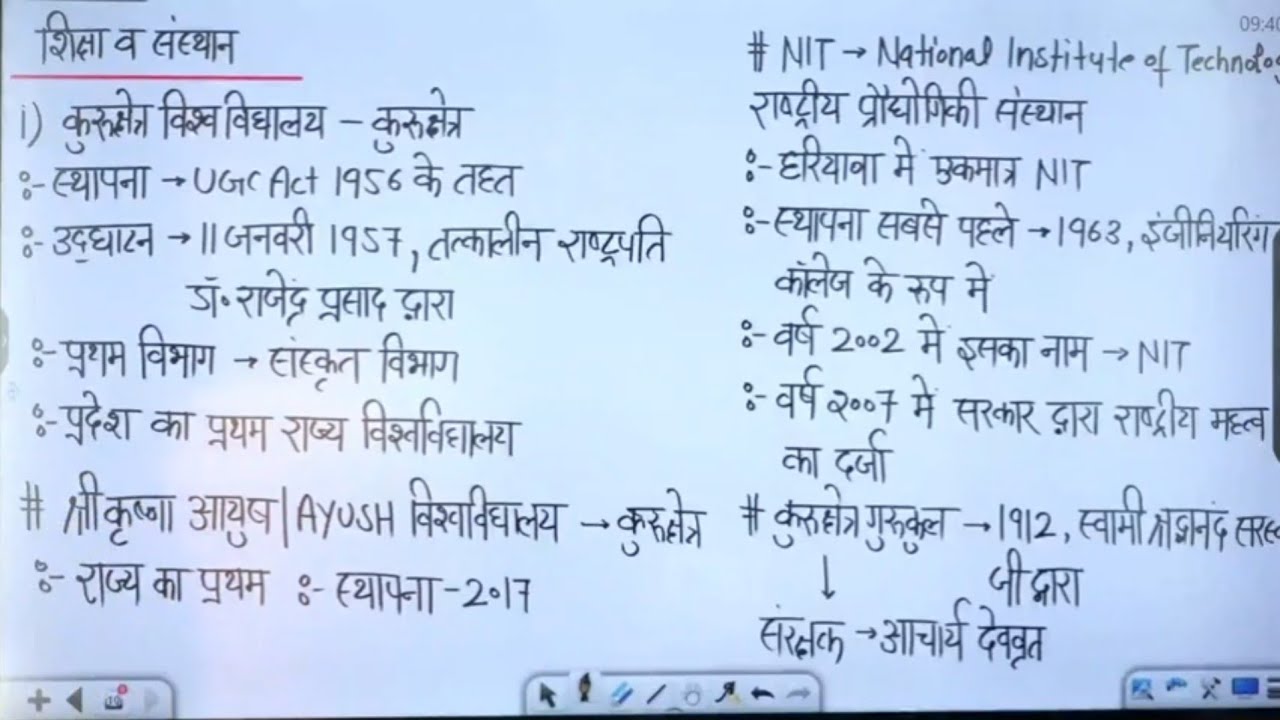 शिक्षा व संस्थान
i) कुरुक्षेत्र विश्वविद्यालय – कुरुक्षेत्र
:- स्थापना → UGC Act 1956 के तहत
:- उद्घाटन → 11 जनवरी 1957, तत्कालीन राष्ट्रपति
डॉ. राजेंद्र प्रसाद द्वारा
:- प्रथम विभाग → संस्कृत विभाग
:- प्रदेश का प्रथम राज्य विश्वविद्यालय
# श्रीकृष्णा आयुष | AYUSH विश्वविद्यालय → कुरुक्षेत्र
:- राज्य का प्रथम :- स्थापना - 2017
09:40
# NIT → National Institute of Technolog
राष्ट्रीय प्रौद्योगिकी संस्थान
:- हरियाणा में एकमात्र NIT
:- स्थापना सबसे पहले → 1963, इंजीनियरिंग
कॉलेज के रूप में
:- वर्ष 2002 में इसका नाम → NIT
:- वर्ष २००7 में सरकार द्वारा राष्ट्रीय महत्व
का दर्जा
# कुरुक्षेत्र गुरुकुल → 1912, स्वामी श्रद्धानंद सरस्व
जी द्वारा
↓
संरक्षक → आचार्य देवव्रत